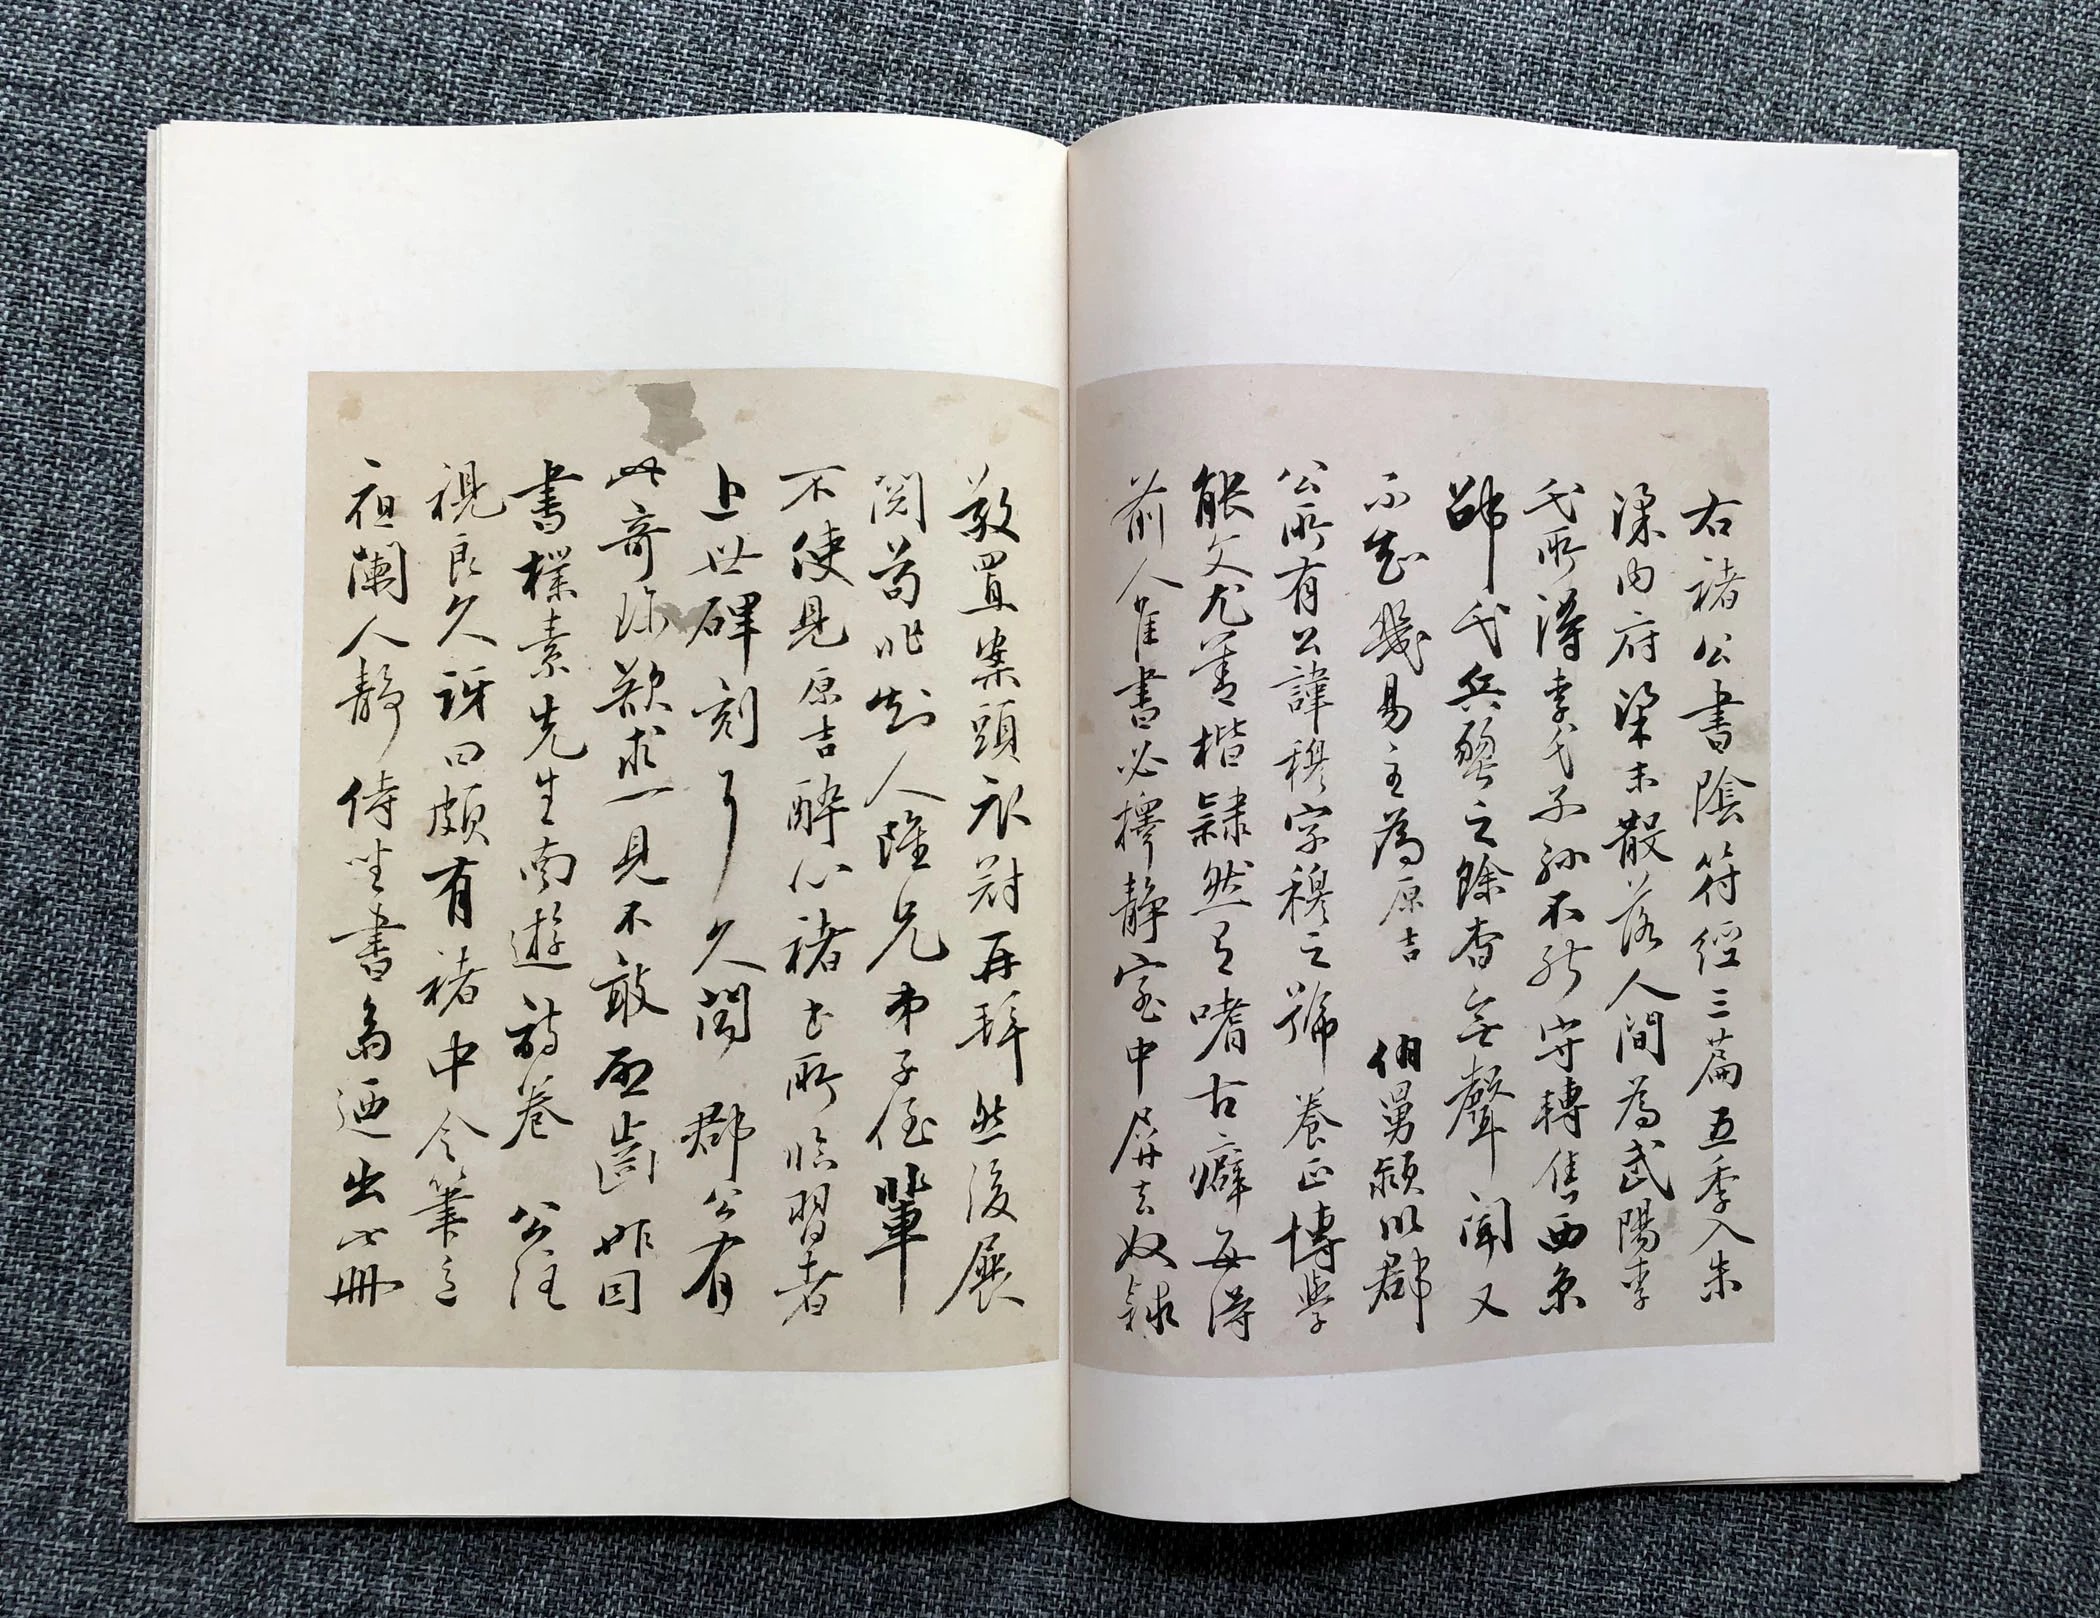 右褚公書陰符經三篇五季入朱
梁內府梁末散落人間為武陽李
氏所得李氏子孫不能守轉售西京
邵氏兵燹之餘杳無聲聞又
不知幾易主為原吉 伯舅潁川郡
公所有公諱穆字穆之號養正博學
能文尤善楷隸然有嗜古癖每得
前人隹書必擇靜室中屏去奴隸
敬置案頭衣冠再拜然後展
閱苟非知人雖兄弟子侄輩
不使見原吉醉心褚書所臨習者
上世碑刻耳久聞 郡公有
此奇珍欲求一見不敢啟齒昨因
書樸素先生南遊詩卷 公注
視良久訝曰頗有褚中令筆意
夜闌人靜侍坐書窗迺出此冊